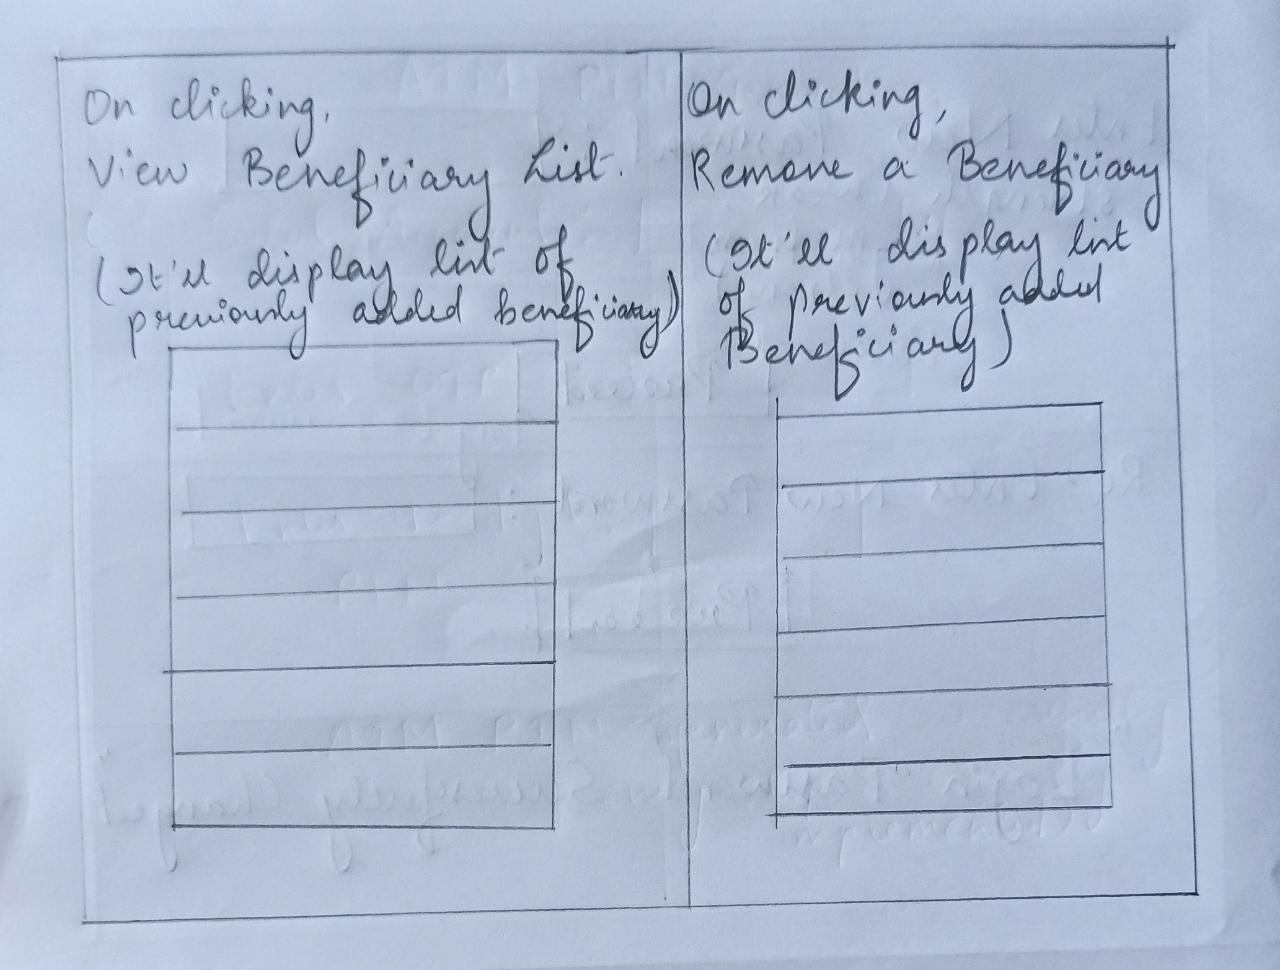 On clicking,
View Beneficiary List.
(It'll display list of
previously added beneficiary)
On clicking,
Remove a Beneficiary
(It'll display list
of previously added
Beneficiary)